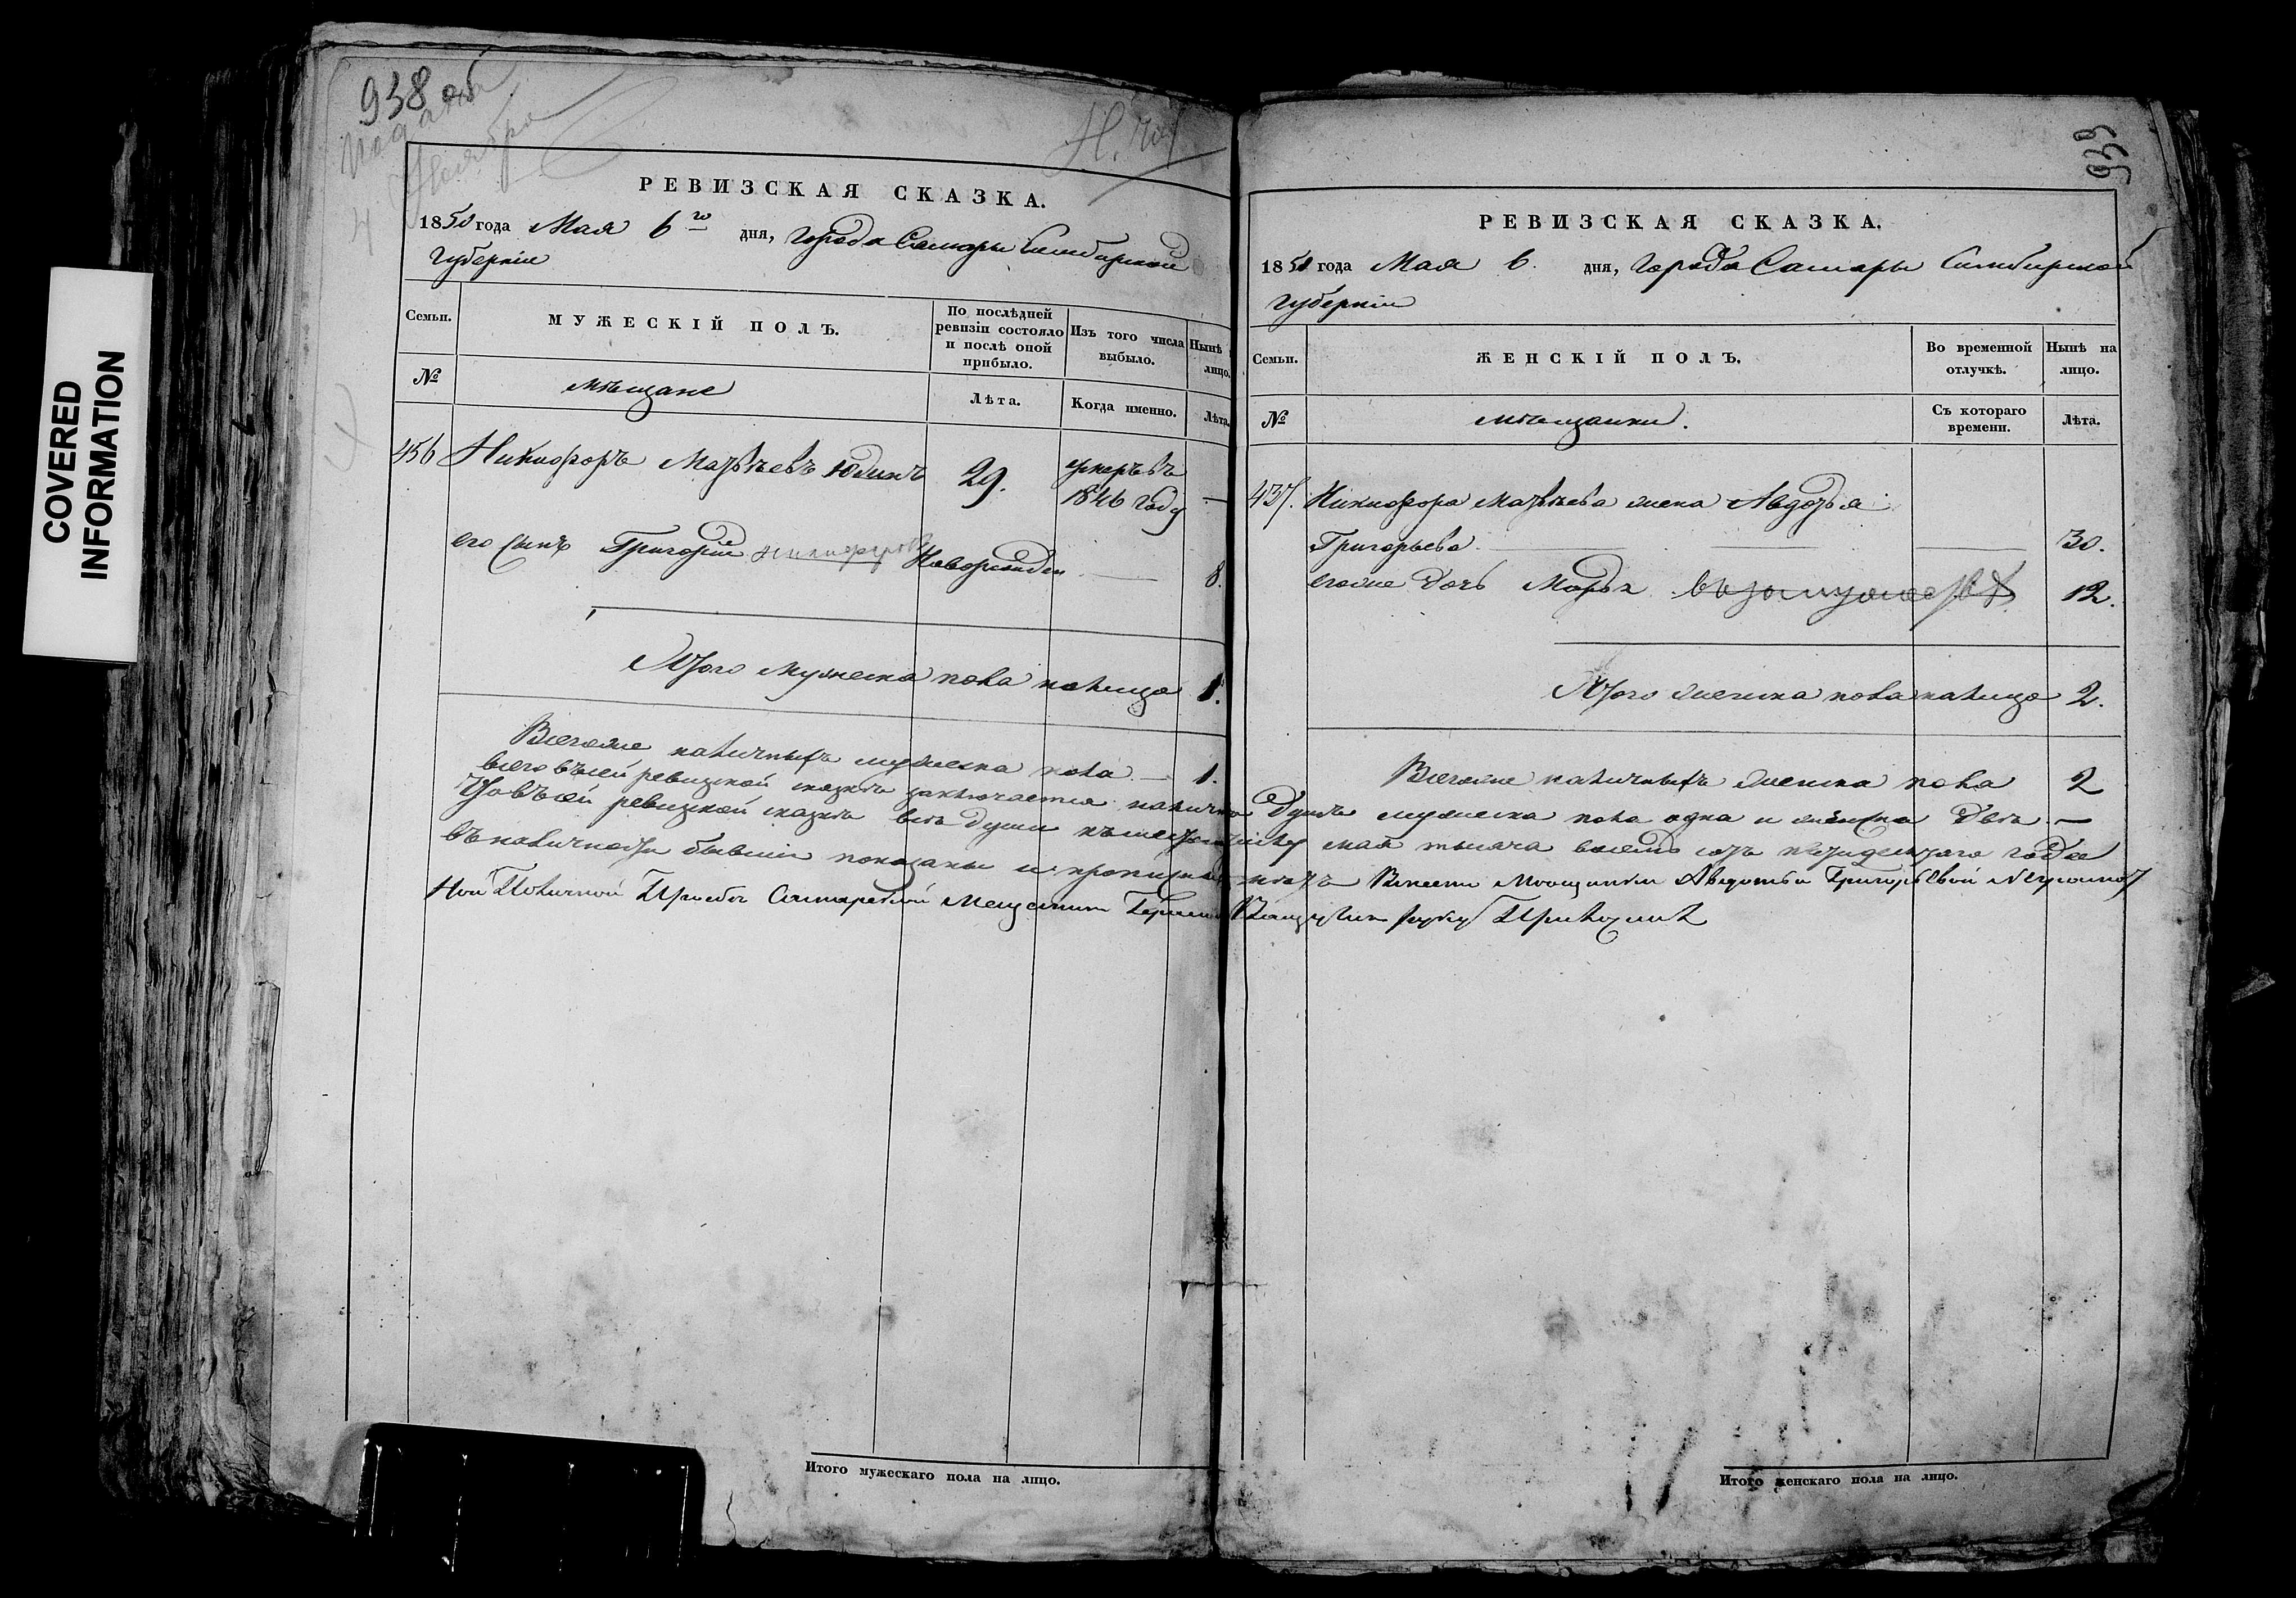 938 об
Подана
4 Ноября
РЕВИЗСКАЯ СКАЗКА.
1850 года Мая 6го дня, Города Самары Симбирской
Губерніи
Семьи.
МУЖЕСКІЙ ПОЛЪ.
По послѣдней ревизіи состояло и послѣ оной прибыло.
Изъ того числа выбыло.
Нынѣ лицо.
№
мѣщане
Лѣта.
Когда именно.
Лѣта.
456 Никифоръ Матвѣевъ Юдинъ 29. умеръ въ 1846 году —
его сынъ Григорій Никифоров Новорожден — 8.
Итого мужеска пола налицо 1.
Всегоже наличныхъ мужеска пола — 1.
всего въ сей ревизской сказкѣ заключается налично
Что въ сей ревизской сказкѣ всѣ души къ
въ наличности бывшіи показаны и
COVERED
INFORMATION
Итого мужескаго пола на лицо.
939
РЕВИЗСКАЯ СКАЗКА.
1850 года Мая 6. дня, Города Самары Симбирской
Губерніи
Семьи.
ЖЕНСКІЙ ПОЛЪ.
Во временной отлучкѣ.
Нынѣ на лицо.
№
мѣщанки.
Съ котораго времени.
Лѣта.
437. Никифора Матвѣева жена Авдотья
Григорьева — 30.
егоже дочь Марья в замужестве 12.
Итого женска пола налицо 2.
Всегоже наличныхъ женска пола 2
душъ мужеска пола одна и женска двѣ —
мая тысяча восемь сотъ пятидесятаго года
Вместо Мещанки Авдотьи Григорьевой неграмотной
По личной Просьбе Самарской Мещанин руку Приложил
Итого женскаго пола на лицо.